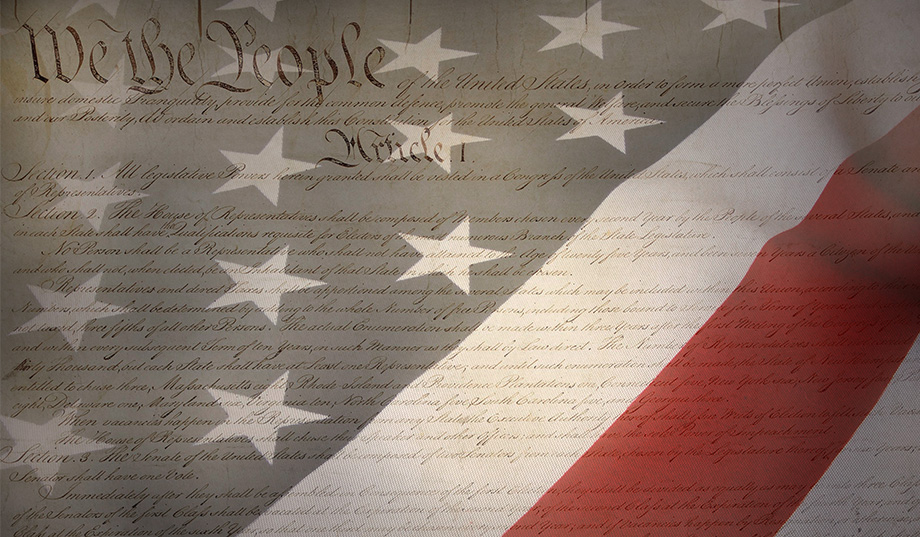 We the People of the United States, in Order to form a more perfect Union, establish
insure domestic Tranquility, provide for the common defence, promote the general Welfare, and secure the Blessings of Liberty to
and our Posterity, do ordain and establish this Constitution for the United States of America.
Article. I.
Section. 1. All legislative Powers herein granted shall be vested in a Congress of the United States, which shall consist of a Senate and
of Representatives.
Section. 2. The House of Representatives shall be composed of Members chosen every second Year by the People of the several States, and
in each State shall have the Qualifications requisite for Electors of the most numerous Branch of the State Legislature.
No Person shall be a Representative who shall not have attained to the Age of twenty five Years, and been seven Years a Citizen of the
and who shall not, when elected, be an Inhabitant of that State in which he shall be chosen.
Representatives and direct Taxes shall be apportioned among the several States which may be included within this Union, according to
Numbers, which shall be determined by adding to the whole Number of free Persons, including those bound to Service for a Term of Years
not taxed, three fifths of all other Persons. The actual Enumeration shall be made within three Years after the first Meeting of the Congress
and within every subsequent Term of ten Years, in such Manner as they shall by Law direct. The Number of Representatives shall not
thirty Thousand, but each State shall have at Least one Representative; and until such enumeration shall be made, the State of
entitled to chuse three, Massachusetts eight, Rhode Island and Providence Plantations one, Connecticut five, New York six, New Jersey
eight, Delaware one, Maryland six, Virginia ten, North Carolina five, South Carolina five, and Georgia three.
When vacancies happen in the Representation from any State, the Executive Authority thereof shall issue Writs of Election to fill
The House of Representatives shall chuse their Speaker and other Officers; and shall have the sole Power of Impeachment.
Section. 3. The Senate of the United States shall be composed of two Senators from each State, chosen by the Legislature thereof,
Senator shall have one Vote.
Immediately after they shall be assembled in Consequence of the first Election, they shall be divided as equally as may
of the Senators of the first Class shall be vacated at the Expiration of the second Year, of the second Class at the Expiration of
Class at the Expiration of the sixth Year, so that one third may be chosen every second Year; and if Vacancies happen by Resignation, or otherwise,